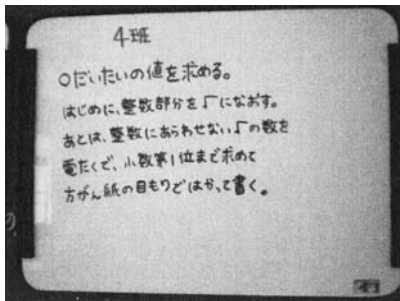 4班
○だいたいの値を求める。
はじめに、整数部分を√になおす。
あとは、整数にあらわせない√の数を
電たくで、小数第1位まで求めて
方がん紙の目もりではかって書く。